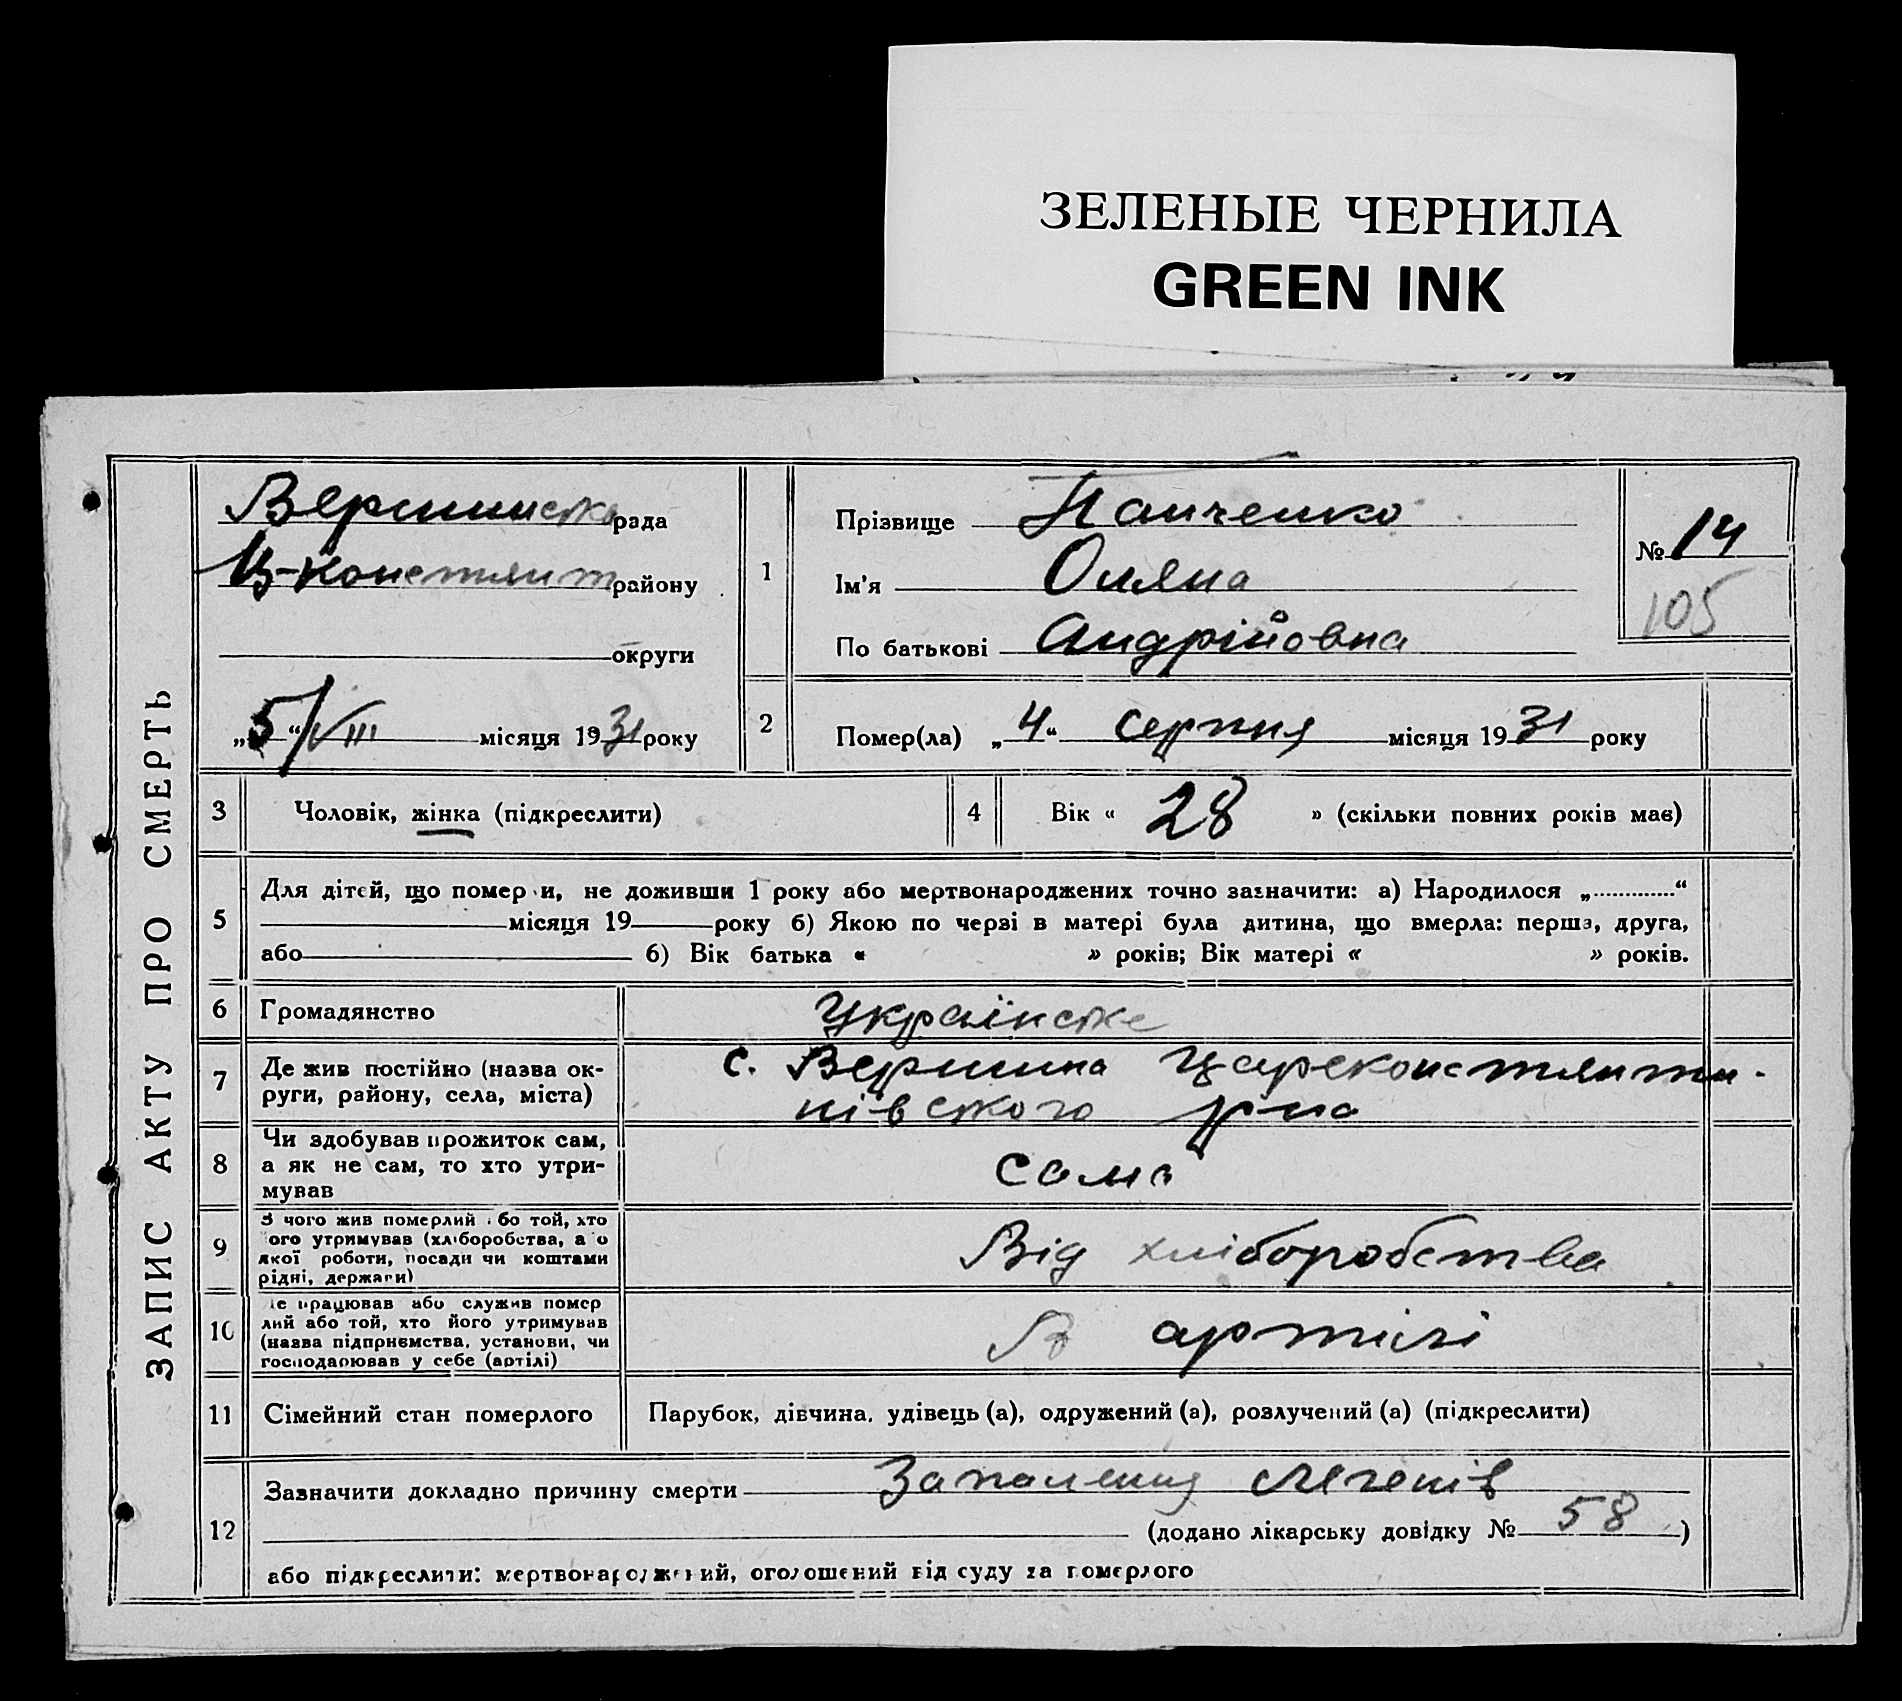 ЗЕЛЕНЫЕ ЧЕРНИЛА
GREEN INK
ЗАПИС АКТУ ПРО СМЕРТЬ
Вершинська рада
Ц-Констянт району
округи
„5“/VIII місяця 1931 року
1
Прізвище Панченко
Ім'я Оляна
По батькові Андрійовна
№ 14
105
2
Помер(ла) „4“ серпня місяця 1931 року
3 Чоловік, жінка (підкреслити)
4 Вік « 28 » (скільки повних років має)
5
Для дітей, що померли, не доживши 1 року або мертвонароджених точно зазначити: а) Народилося „ “
місяця 19 року б) Якою по черзі в матері була дитина, що вмерла: перша, друга,
або б) Вік батька « » років; Вік матері « » років.
6 Громадянство Українське
7
Де жив постійно (назва ок-
руги, району, села, міста)
с. Вершина Цареконстянти-
нівського р-на
8
Чи здобував прожиток сам,
а як не сам, то хто утри-
мував
сама
9
З чого жив померлий або той, хто
його утримував (хліборобства, або
якої роботи, посади чи коштами
рідні, держави)
Від хліборобства
10
Де працював або служив помер
лий або той, хто його утримував
(назва підприємства, установи, чи
господарював у себе (артілі)
В артілі
11 Сімейний стан померлого Парубок, дівчина, удівець (а), одружений (а), розлучений (а) (підкреслити)
12
Зазначити докладно причину смерти Запалення легенів
(додано лікарську довідку № 58 )
або підкреслити: мертвонароджений, оголошений від суду за померлого